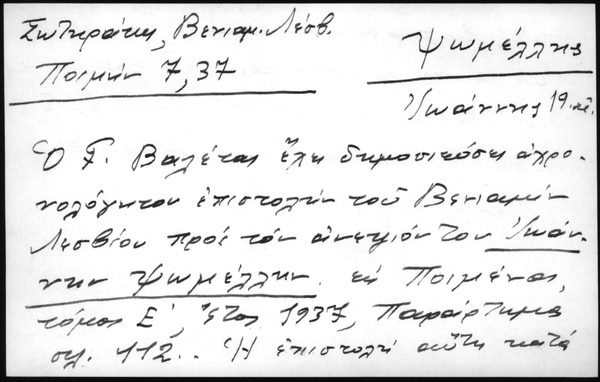 Σωτηράκης, Βενιαμ. Λέσβ.
Ποιμήν 7, 37
Ψωμέλλης
Ἰωάννης 19.
Ὁ Γ. Βαλέτας ἔχει δημοσιεύσει ἀχρο-
νολόγητον ἐπιστολὴν τοῦ Βενιαμὶν
Λεσβίου πρὸς τὸν ἀνεψιόν του Ἰωάν-
νην Ψωμέλλην. εἰς Ποιμένος,
τόμος Ε', ἔτος 1937, Παράρτημα
σελ. 112.. Ἡ ἐπιστολὴ αὕτη κατά